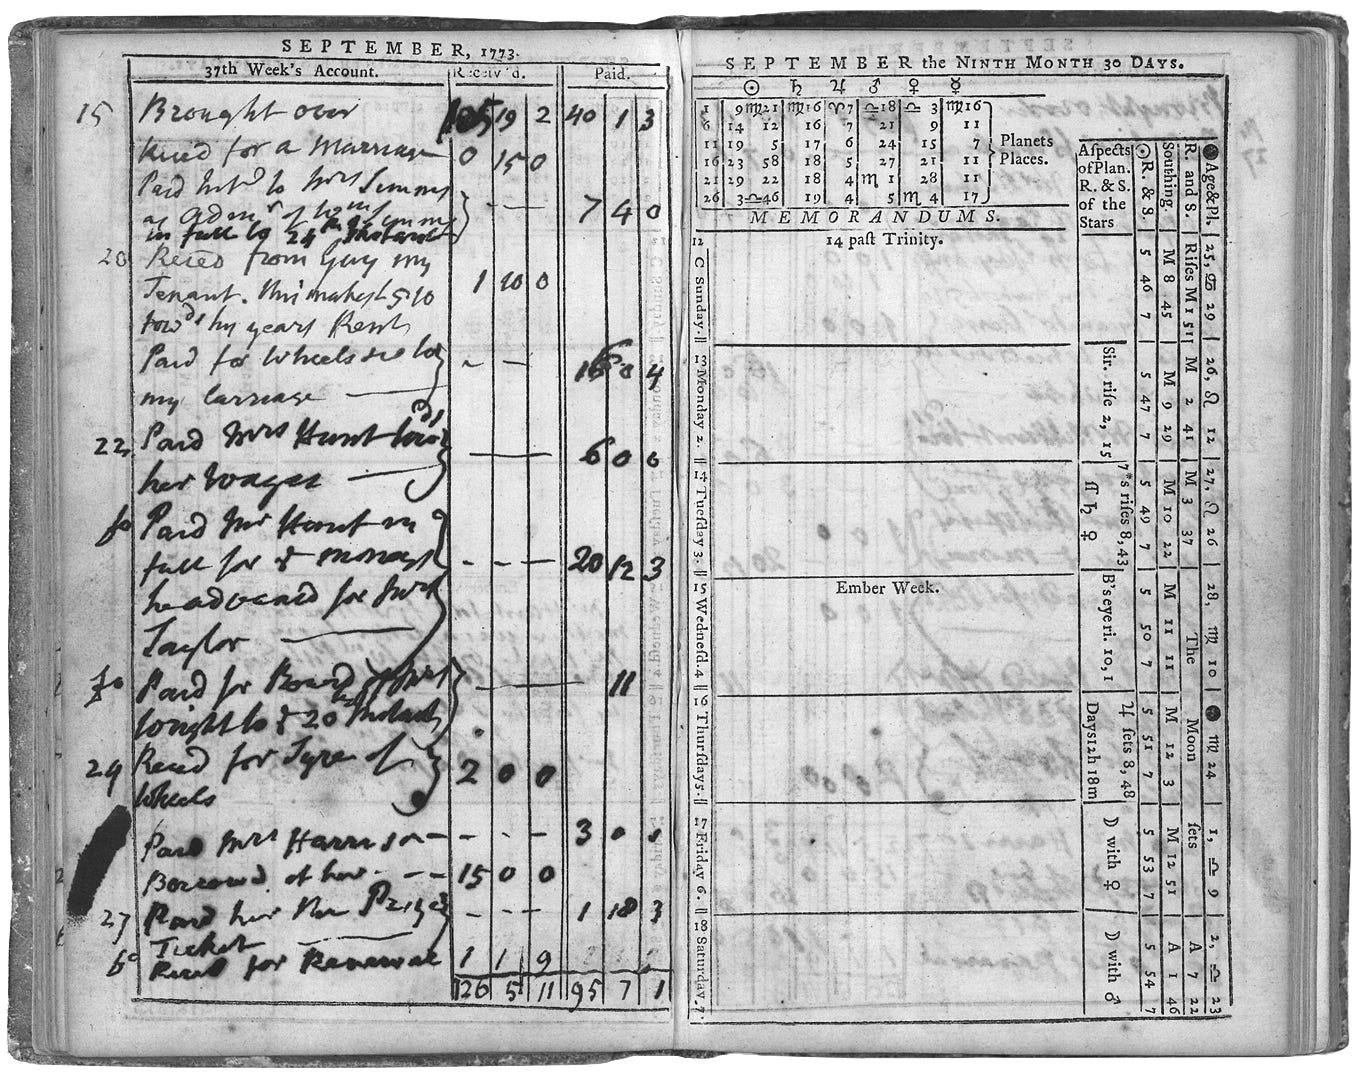 SEPTEMBER, 1773.
37th Week's Account. Receiv'd. Paid.
15 Brought over 105 19 2 40 1 3
Reced for a Marriage 0 15 0
Paid Int.d to Mrs Simms
as adm.r of
in full to 24th Instant - - - 7 4 0
20 Reced from Guy my
Tenant. this makes £5:10 1 10 0
tow.ds his years Rent
Paid for Wheels &c to - - - 16 0 4
my Carriage
22 Paid Mrs Hunt tow.ds
her Wages 6 0 0
do Paid Mr Hunt in
full for ye money - - - 20 12 3
he advanced for Mrs
Taylor
do Paid for Board
tonight to ye 20th Instant 11
24 Reced for Tyre of 2 0 0
Wheels
Paid Mrs Harrison - - - 3 0 0
Borrowed of her - - - 15 0 0
27 Paid her the Prize - - - 1 18 3
Ticket
do Reced for Renewal 1 1 9
126 5 11 95 7 1
SEPTEMBER the NINTH MONTH 30 DAYS.
☉ ♄ ♃ ♂ ♀ ☿
1 9♍21 ♍16 ♈7 ♎18 ♎ 3 ♍16
6 14 12 16 7 21 9 11
11 19 5 17 6 24 15 7
16 23 58 18 5 27 21 11
21 29 22 18 4 ♏ 1 28 11
26 3♎46 19 4 5 ♏ 4 17
Planets
Places.
MEMORANDUMS.
14 past Trinity.
12 C Sunday. 1
13 Monday 2.
14 Tuesday 3.
15 Wednesd. 4
Ember Week.
16 Thursday 5.
17 Friday 6.
18 Saturday. 7.
Aspects
of Plan.
R. & S.
of the
Stars
Sir. rise 2, 15
7*s rises 8, 43
ſſ ♄ ♀
B'seyeri. 10, 1
♃ sets 8, 48
Days 12h 18m
☽ with ♀
☽ with ♂
☉ R. & S.
5 46 7
5 47 7
5 49 7
5 50 7
5 51 7
5 53 7
5 54 7
Southing.
M 8 45
M 9 29
M 10 22
M 11 11
M 12 3
M 12 51
A 1 46
R. and S.
Rises M 1 51
M 2 41
M 3 37
The
Moon
sets
A 7 22
● Age&Pl.
25, ♋ 29
26, ♌ 12
27, ♌ 26
28, ♍ 10
● ♍ 24
1, ♎ 9
2, ♎ 23